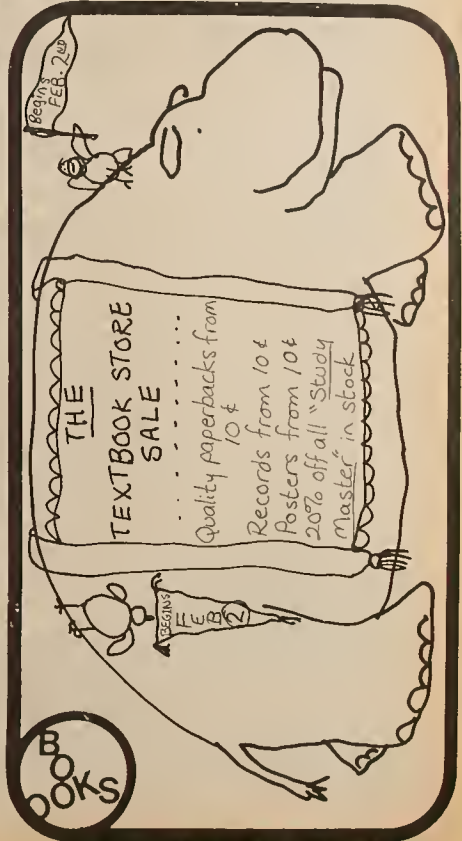 BOOKS
THE
TEXTBOOK STORE
SALE
. . . . . . . . . .
Quality paperbacks from
10¢
Records from 10¢
Posters from 10¢
20% off all "Study
Master" in stock
BEGINS
FEB
2
Begins
FEB. 2ND